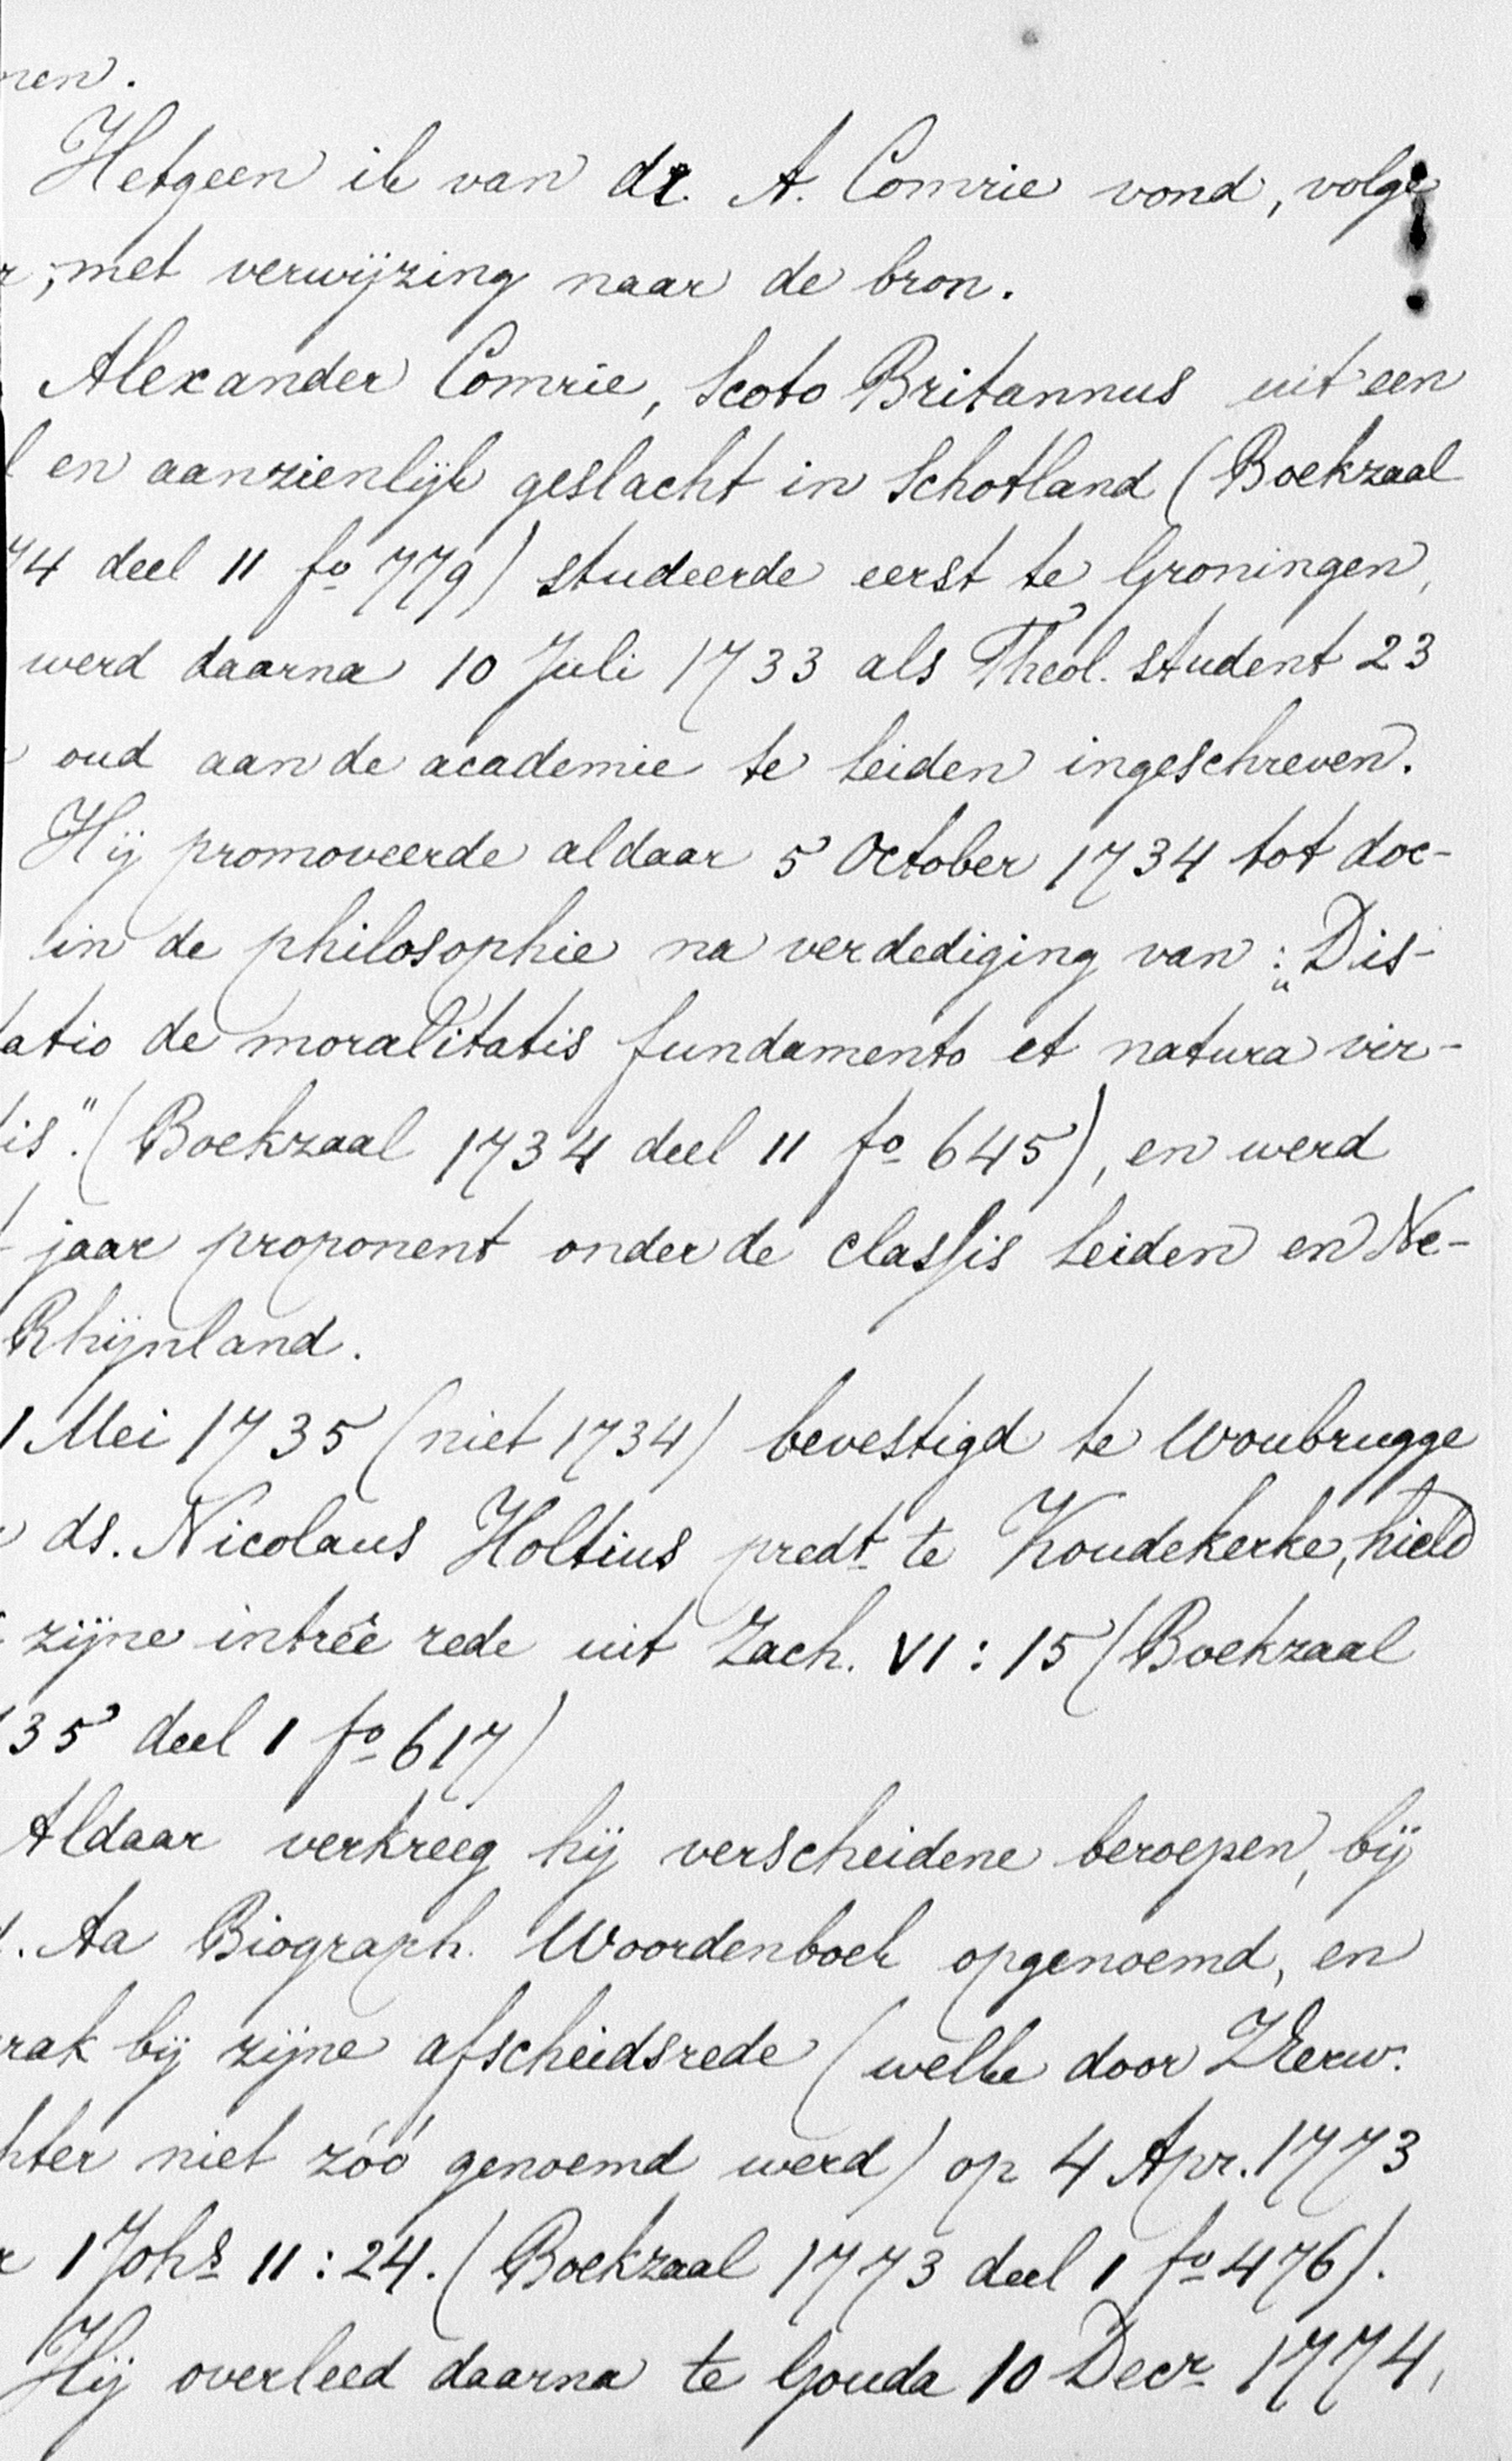 nen.
Hetgeen ik van dr. A. Comrie vond, volge
r, met verwijzing naar de bron.
Alexander Comrie, Scoto Britannus uit een
l en aanzienlijk geslacht in Schotland (Boekzaal
74 deel 11 fo 779) studeerde eerst te Groningen,
werd daarna 10 Juli 1733 als Theol. student 23
oud aan de academie te Leiden ingeschreven.
Hij promoveerde aldaar 5 October 1734 tot doc-
in de philosophie na verdediging van: „Dis-
tatio de moralitatis fundamento et natura vir-
tis". (Boekzaal 1734 deel 11 fo 645), en werd
t jaar proponent onder de classis Leiden en Ne-
Rhijnland.
1 Mei 1735 (niet 1734) bevestigd te Woubrugge
ds. Nicolaus Holtius predt. te Koudekerke, hield
zijne intréé rede uit Zach. VI : 15 (Boekzaal
35 deel 1 fo 617)
Aldaar verkreeg hij verscheidene beroepen, bij
d. Aa Biograph. Woordenboek opgenoemd, en
rak bij zijne afscheidsrede (welke door ZEerw.
hter niet zóó genoemd werd) op 4 Apr. 1773
r 1 Johs 11 : 24. (Boekzaal 1773 deel 1 fo 476).
Hij overleed daarna te Gouda 10 Decr 1774,